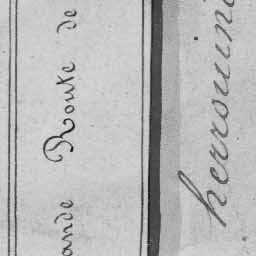 ande Route de
herrouini